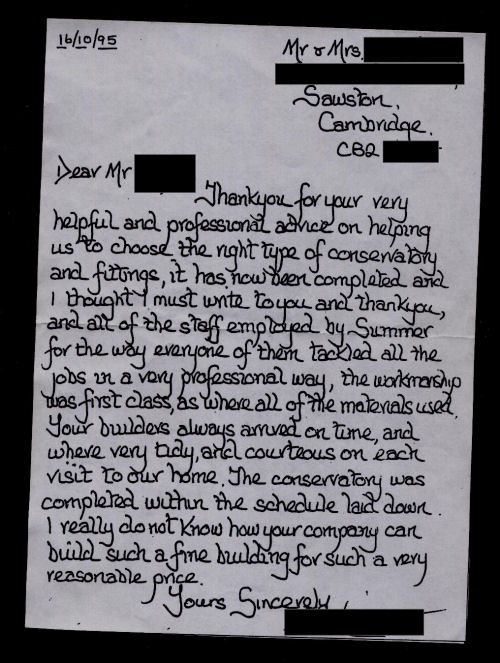 16/10/95
Mr & Mrs.
Sawston.
Cambridge.
CB2
Dear Mr
Thankyou for your very
helpful and professional advice on helping
us to choose the right type of conservatory
and fittings, it has now been completed and
I thought I must write to you and thankyou,
and all of the staff employed by Summer
for the way everyone of them tackled all the
jobs in a very professional way, the workmanship
was first class, as where all of the materials used.
Your builders always arrived on time, and
where very tidy, and courteous on each
visit to our home. The conservatory was
completed within the schedule laid down.
I really do not know how your company can
build such a fine building for such a very
reasonable price.
Yours Sincerely,